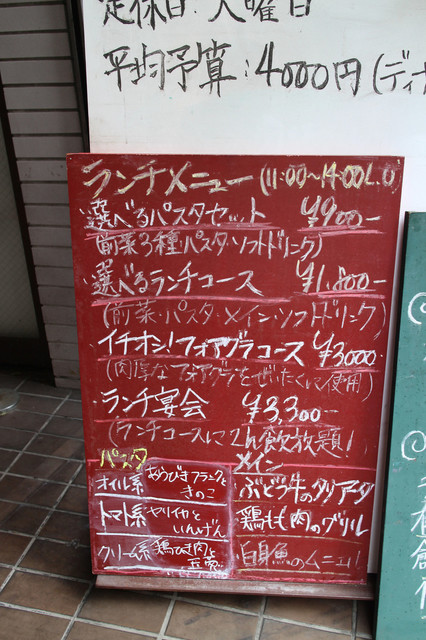 定休日:火曜日
平均予算:4000円(ディナ
ランチメニュー(11:00~14:00L.O
選べるパスタセット ¥900-
(前菜3種パスタソフトドリンク)
選べるランチコース ¥1,800-
(前菜・パスタ・メイン・ソフトドリンク)
イチオシ!フォアグラコース ¥3000-
(肉厚なフォアグラをぜいたくに使用)
ランチ宴会 ¥3,300-
(ランチコースに2h飲放題!
パスタ
オイル系 あらびきフランクと
きのこ
トマト系 ヤリイカと
いんげん
クリーム系 鶏ひき肉と
メイン
ぶどう牛のタリアータ
鶏もも肉のグリル
白身魚のムニエル